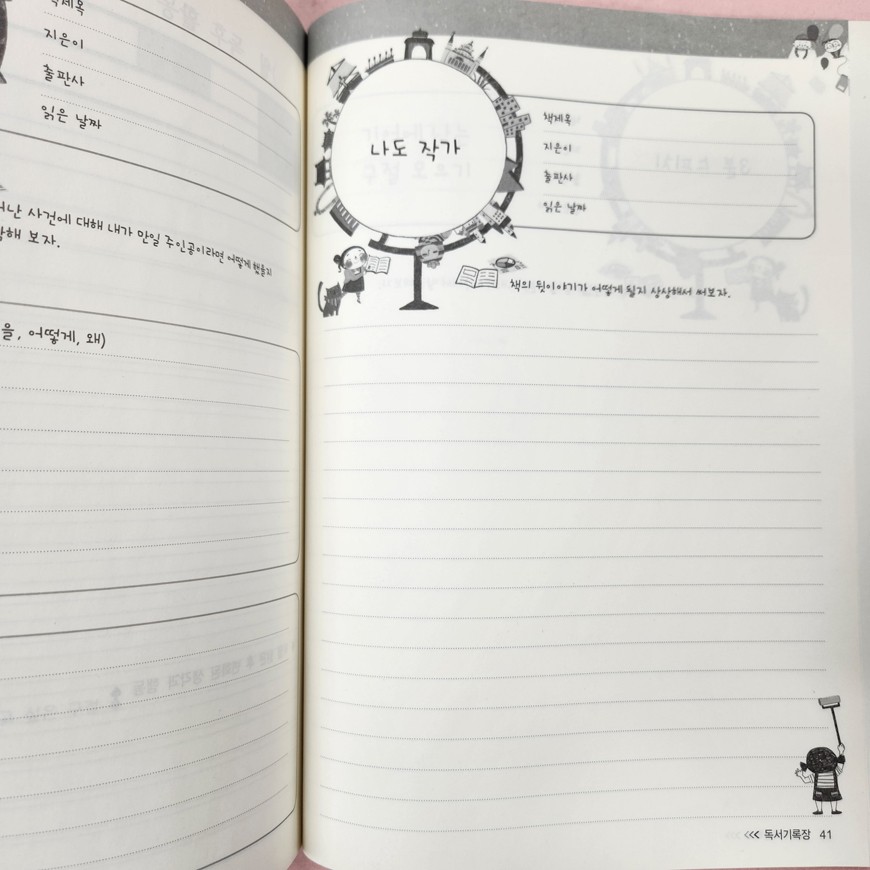 책제목
지은이
출판사
읽은 날짜
난 사건에 대해 내가 만일 주인공이라면 어떻게 했을지
해 보자.
을, 어떻게, 왜)
나도 작가
책제목
지은이
출판사
읽은 날짜
책의 뒷이야기가 어떻게 될지 상상해서 써보자.
<<< 독서기록장 41